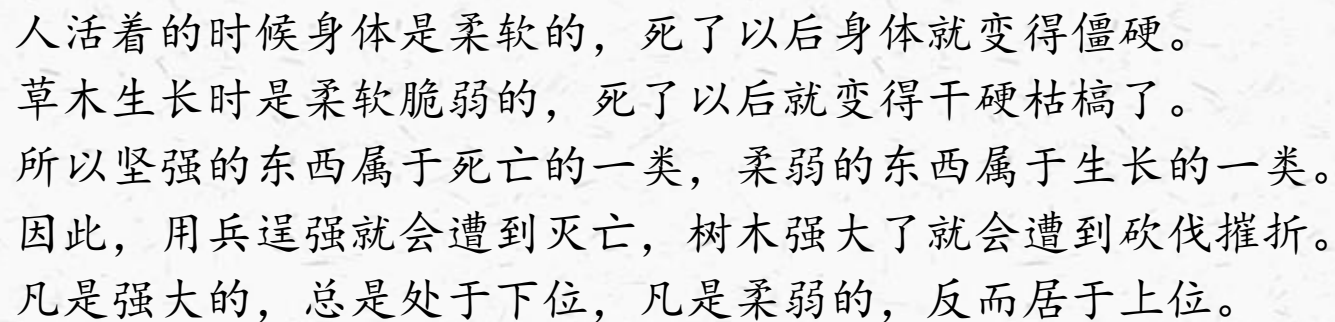 人活着的时候身体是柔软的，死了以后身体就变得僵硬。
草木生长时是柔软脆弱的，死了以后就变得干硬枯槁了。
所以坚强的东西属于死亡的一类，柔弱的东西属于生长的一类。
因此，用兵逞强就会遭到灭亡，树木强大了就会遭到砍伐摧折。
凡是强大的，总是处于下位，凡是柔弱的，反而居于上位。